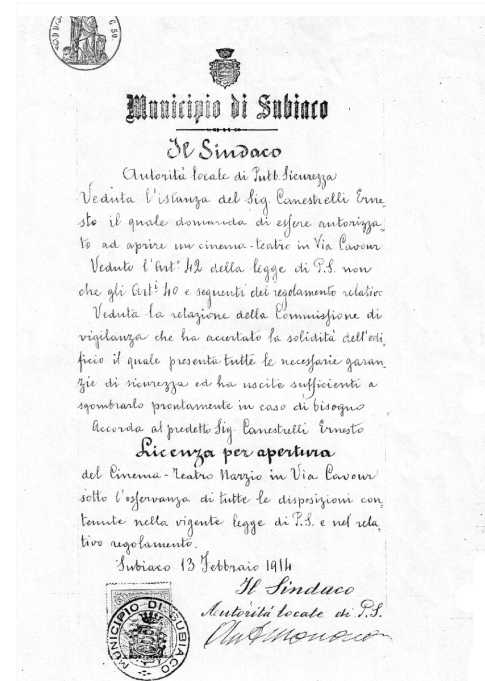 C. 50
Municipio di Subiaco
Il Sindaco
Autorità locale di Pubb. Sicurezza
Veduta l'istanza del Sig. Canestrelli Erne-
sto il quale domanda di essere autorizza-
to ad aprire un cinema-teatro in Via Cavour
Veduto l'Art.º 42 della legge di P.S. non
che gli Art.i 40 e seguenti del regolamento relativo
Veduta la relazione della Commissione di
vigilanza che ha accertato la solidità dell'edi-
ficio il quale presenta tutte le necessarie garan-
zie di sicurezza ed ha uscite sufficienti a
sgombrarlo prontamente in caso di bisogno
Accorda al predetto Sig. Canestrelli Ernesto
Licenza per apertura
del Cinema-Teatro Narzio in Via Cavour
sotto l'osservanza di tutte le disposizioni con-
tenute nella vigente legge di P.S. e nel rela-
tivo regolamento.
Subiaco 13 Febbraio 1914
Il Sindaco
Autorità locale di P.S.
MUNICIPIO DI SUBIACO